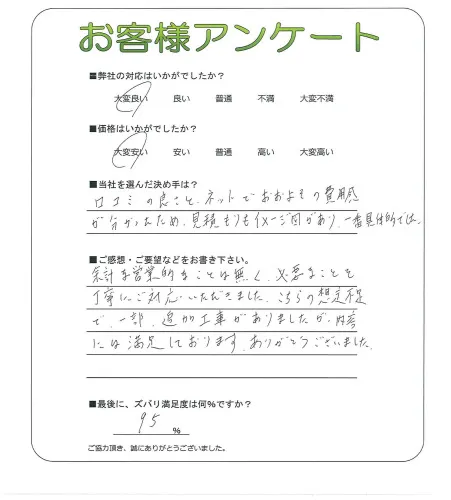 お客様アンケート
■弊社の対応はいかがでしたか？
大変良い 良い 普通 不満 大変不満
■価格はいかがでしたか？
大変安い 安い 普通 高い 大変高い
■当社を選んだ決め手は？
口コミの良さと、ネットでおおよその費用感
が分かったため、見積もりもイメージ図があり、一番具体的でした。
■ご感想・ご要望などをお書き下さい。
余計な営業的なことは無く、必要なことを
丁寧にご対応いただきました。こちらの想定不足
で、一部、追加工事がありましたが、内容
には満足しております。ありがとうございました。
■最後に、ズバリ満足度は何%ですか？
95 %
ご協力頂き、誠にありがとうございました。